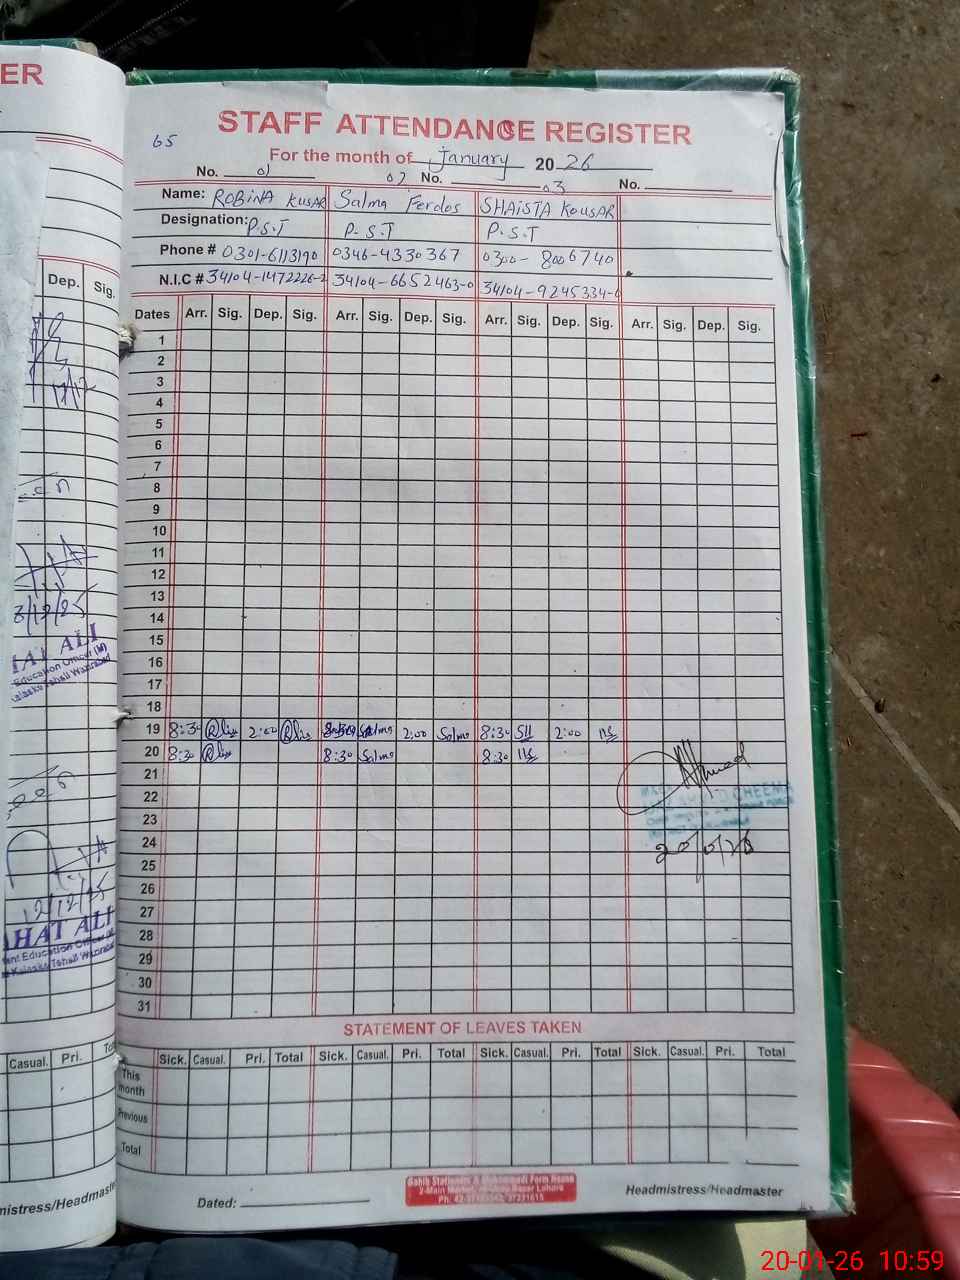 ER
STAFF ATTENDANCE REGISTER
65
For the month of January 2026
No. 01 02 No. 03 No.
Name: ROBINA KUSAR Salma Ferdos SHAISTA KOUSAR
Designation: P.S.T P.S.T P.S.T
Phone # 0301-6113190 0346-4330367 0300-8006740
N.I.C # 34104-1472226-2 34104-6652463-0 34104-9245334-
Dep. Sig.
Dates Arr. Sig. Dep. Sig. Arr. Sig. Dep. Sig. Arr. Sig. Dep. Sig. Arr. Sig. Dep. Sig.
1
2
3
4
5
6
7
8
9
10
11
12
13
14
15
16
17
18
19 8:30 2:00 Salma 2:00 Salma 8:30 2:00
20 8:30 8:30 Salma 8:30
21
22
23
24
25
26
27
28
29
30
31
Ahmad
CHEEMA
20/01/26
17/12
3/12/25
HAT ALI
Education Officer (M)
Kalaske Tehsil Wazirabad
12/12/25
AHAT ALI
Education Officer
Kalaske Tehsil Wazirabad
STATEMENT OF LEAVES TAKEN
Casual. Pri.
Sick. Casual. Pri. Total Sick. Casual. Pri. Total Sick. Casual. Pri. Total Sick. Casual. Pri. Total
This month
Previous
Total
mistress/Headmaster
Dated:
Headmistress/Headmaster
20-01-26 10:59